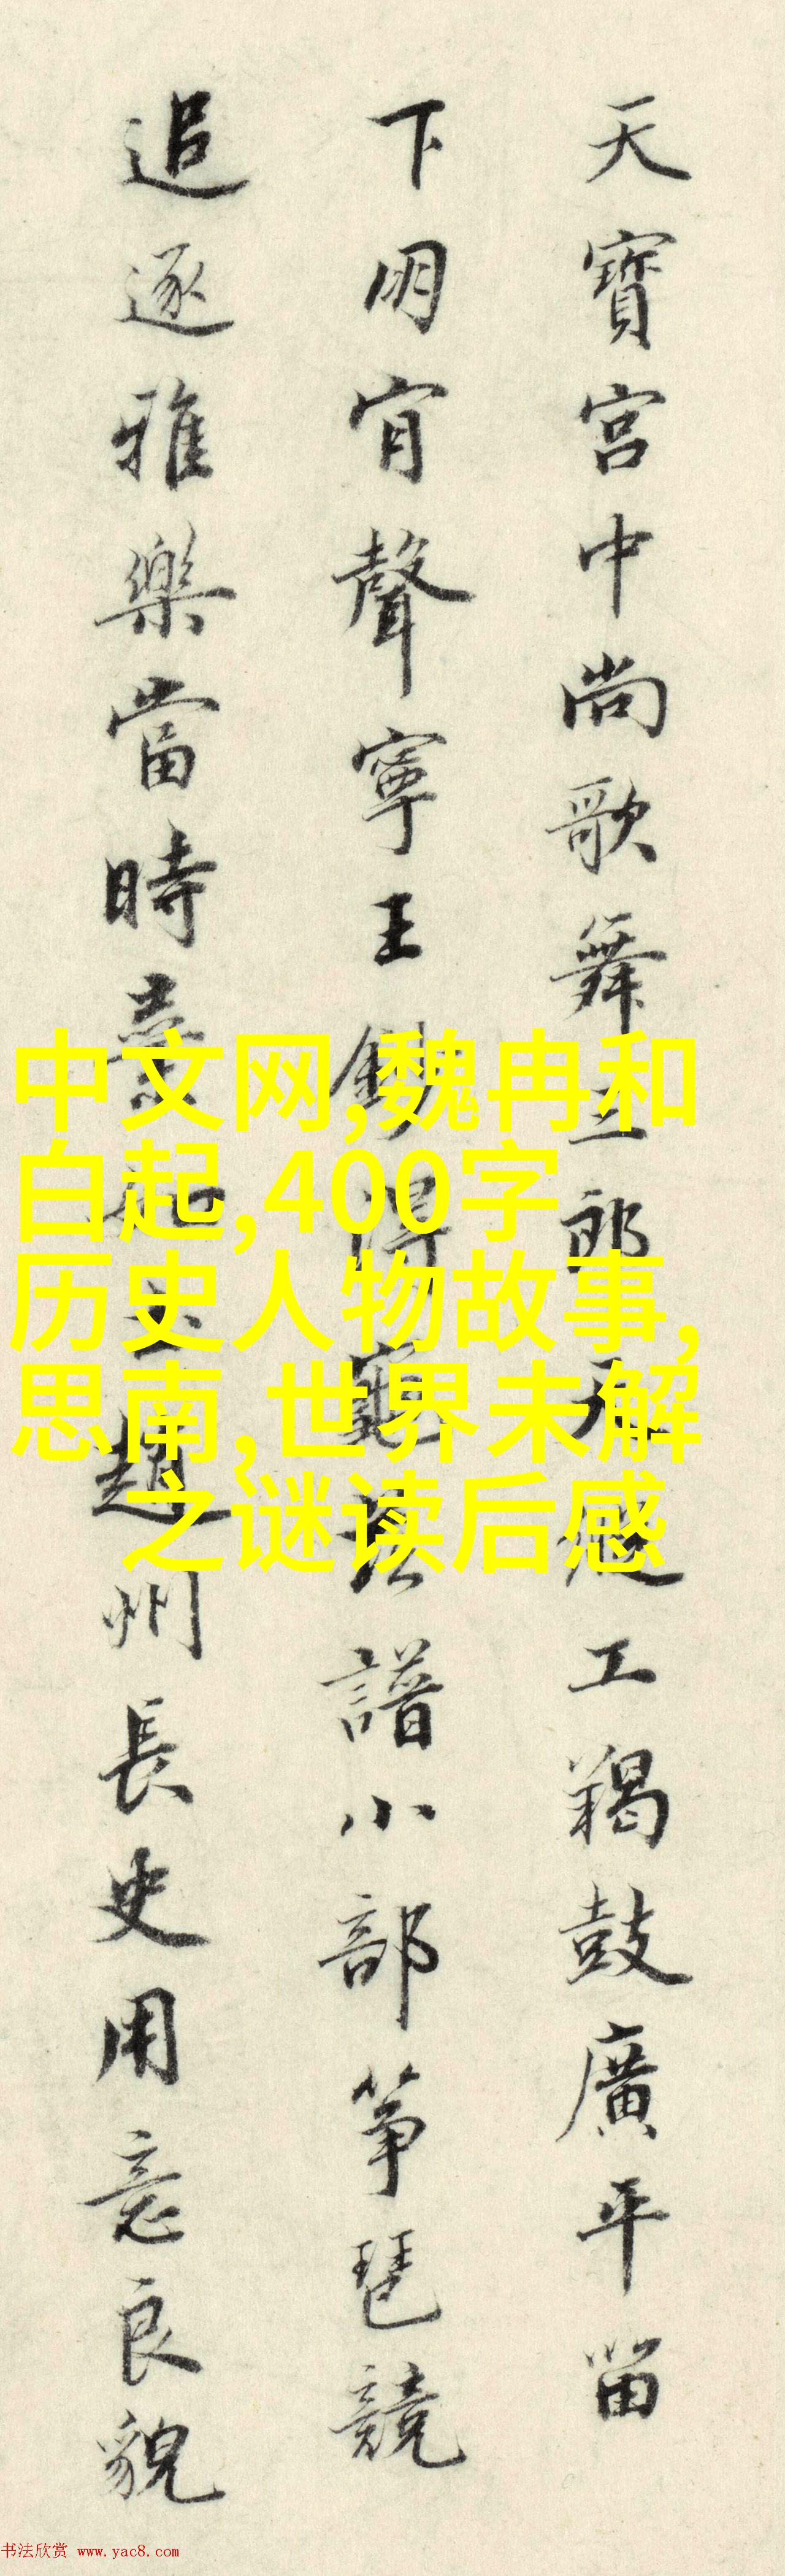 天寶宮中尚歌舞三郎天縱工羯鼓廣平留
下朋肯聲寧王
譜小部箏琶競
追逐雅樂當時
趙州長史用意良貌
中文网,魏冉和
白起,400字
历史人物故事,
思南,世界未解
之谜读后感
书法欣赏 www.yac8.com